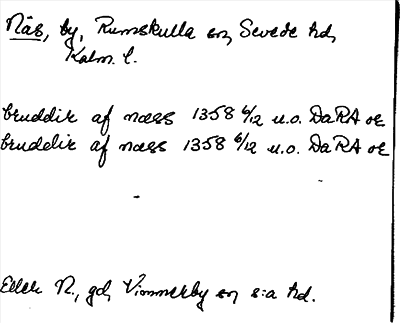 Näs, by, Rumskulla sn, Sevede hd,
Kalm. l.
bruddik af næss 1358 6/12 u.o. DaRA or
brudelir af næss 1358 6/12 u.o. DaRA or
Eller N., gd, Vimmerby sn, s:a hd.